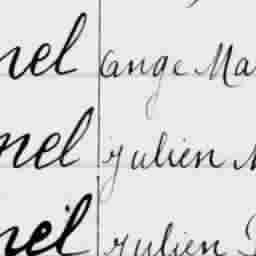 nel ange Ma
nel julien M
nel julien